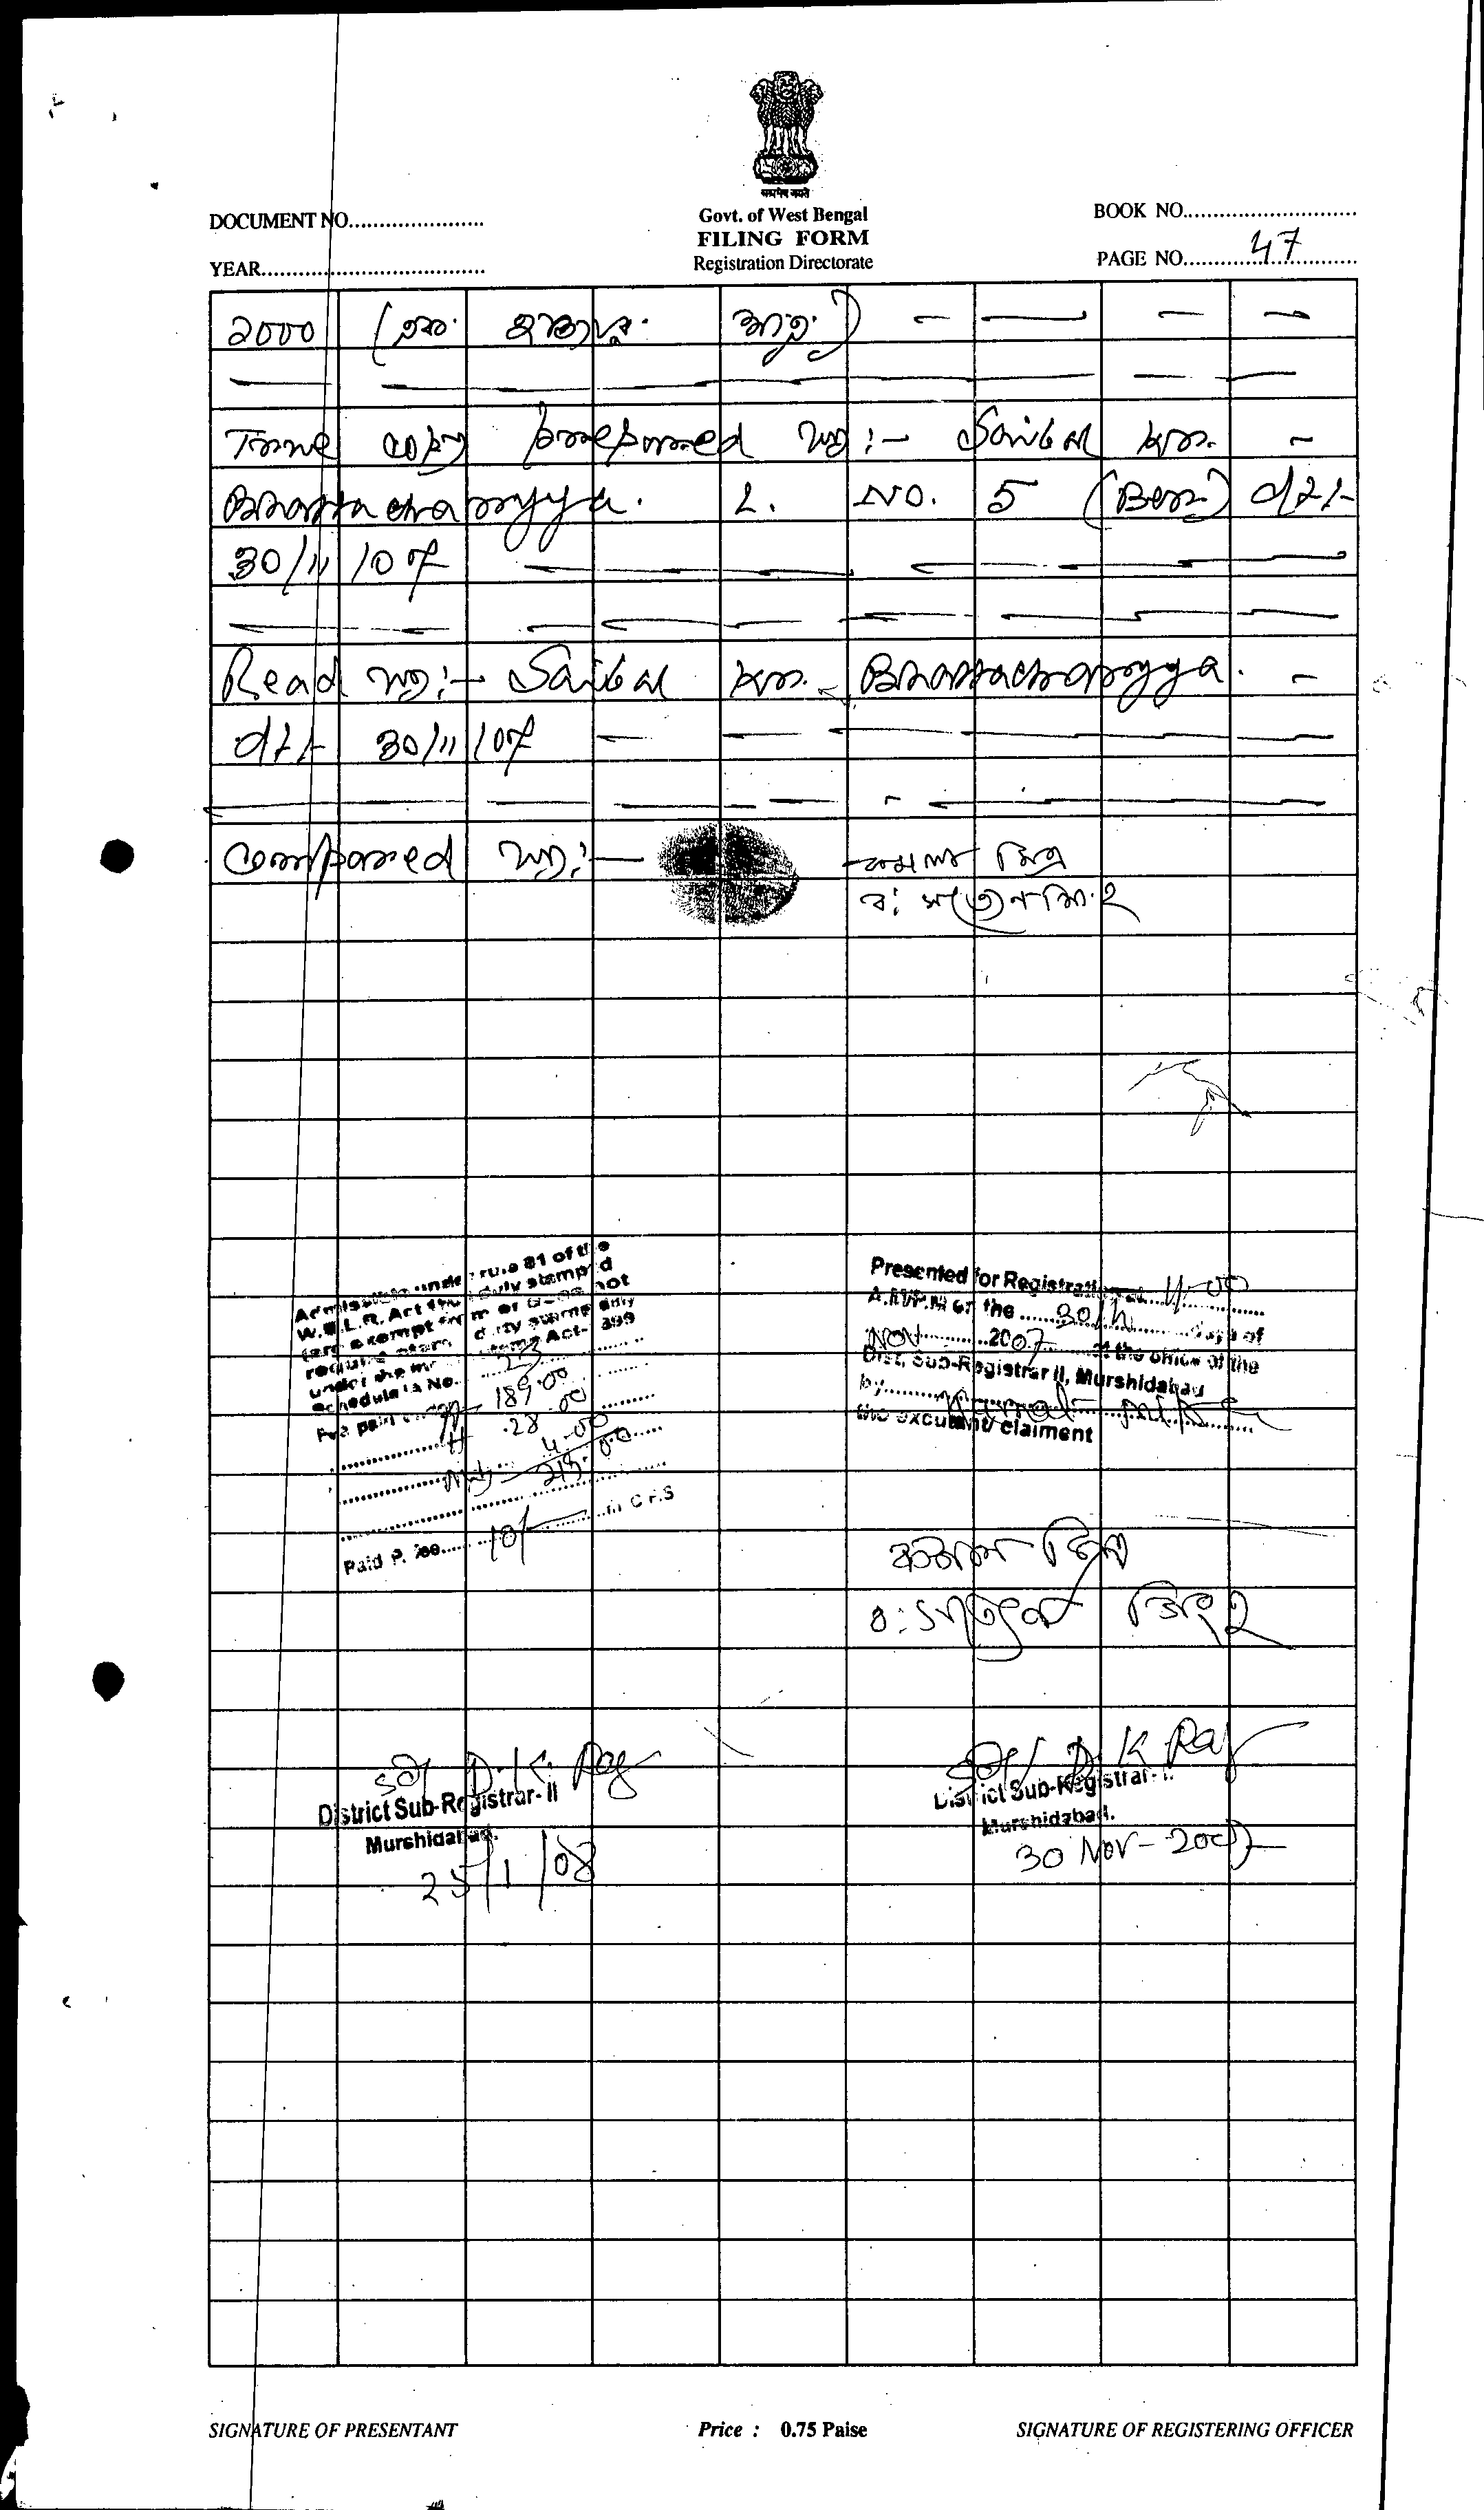 सत्यमेव जयते
DOCUMENT NO......................
Govt. of West Bengal
BOOK NO............................
FILING FORM
YEAR....................................
Registration Directorate
PAGE NO. 47
2000 (এক হাজার মাত্র)
True copy prepared by :- Saibal Kr. -
Bhattacharyya. L. NO. 5 (Ber) dt/-
30/11/07
Read by :- Saibal Kr. Bhattacharyya. -
dt/- 30/11/07
Compared by :-
কমল মিত্র
ব: সত্যেন সিংহ
Admissible under rule 81 of the
W.B.L.R. Act duly stamped
exempt from or does not
require stamp duty
under the Stamps Act- 1899
Schedule 1A No. 23
Fee paid A 189-00
H 28-00
4-00
Paid P. fee 10/- in C F.S
Presented for Registration at 11-00
A.M/P.M on the 30th days of
Nov 2007 at the office of the
Dist. Sub-Registrar II, Murshidabad
by Kamal
the excutant/ claiment
কমল মিত্র
ব: সত্যেন সিংহ
Sd/ D. K. Ray
District Sub-Registrar- II
Murshidabad.
25/1/08
Sd/ D. K Ray
District Sub-Registrar- II
Murshidabad.
30 Nov-2007
SIGNATURE OF PRESENTANT
Price : 0.75 Paise
SIGNATURE OF REGISTERING OFFICER